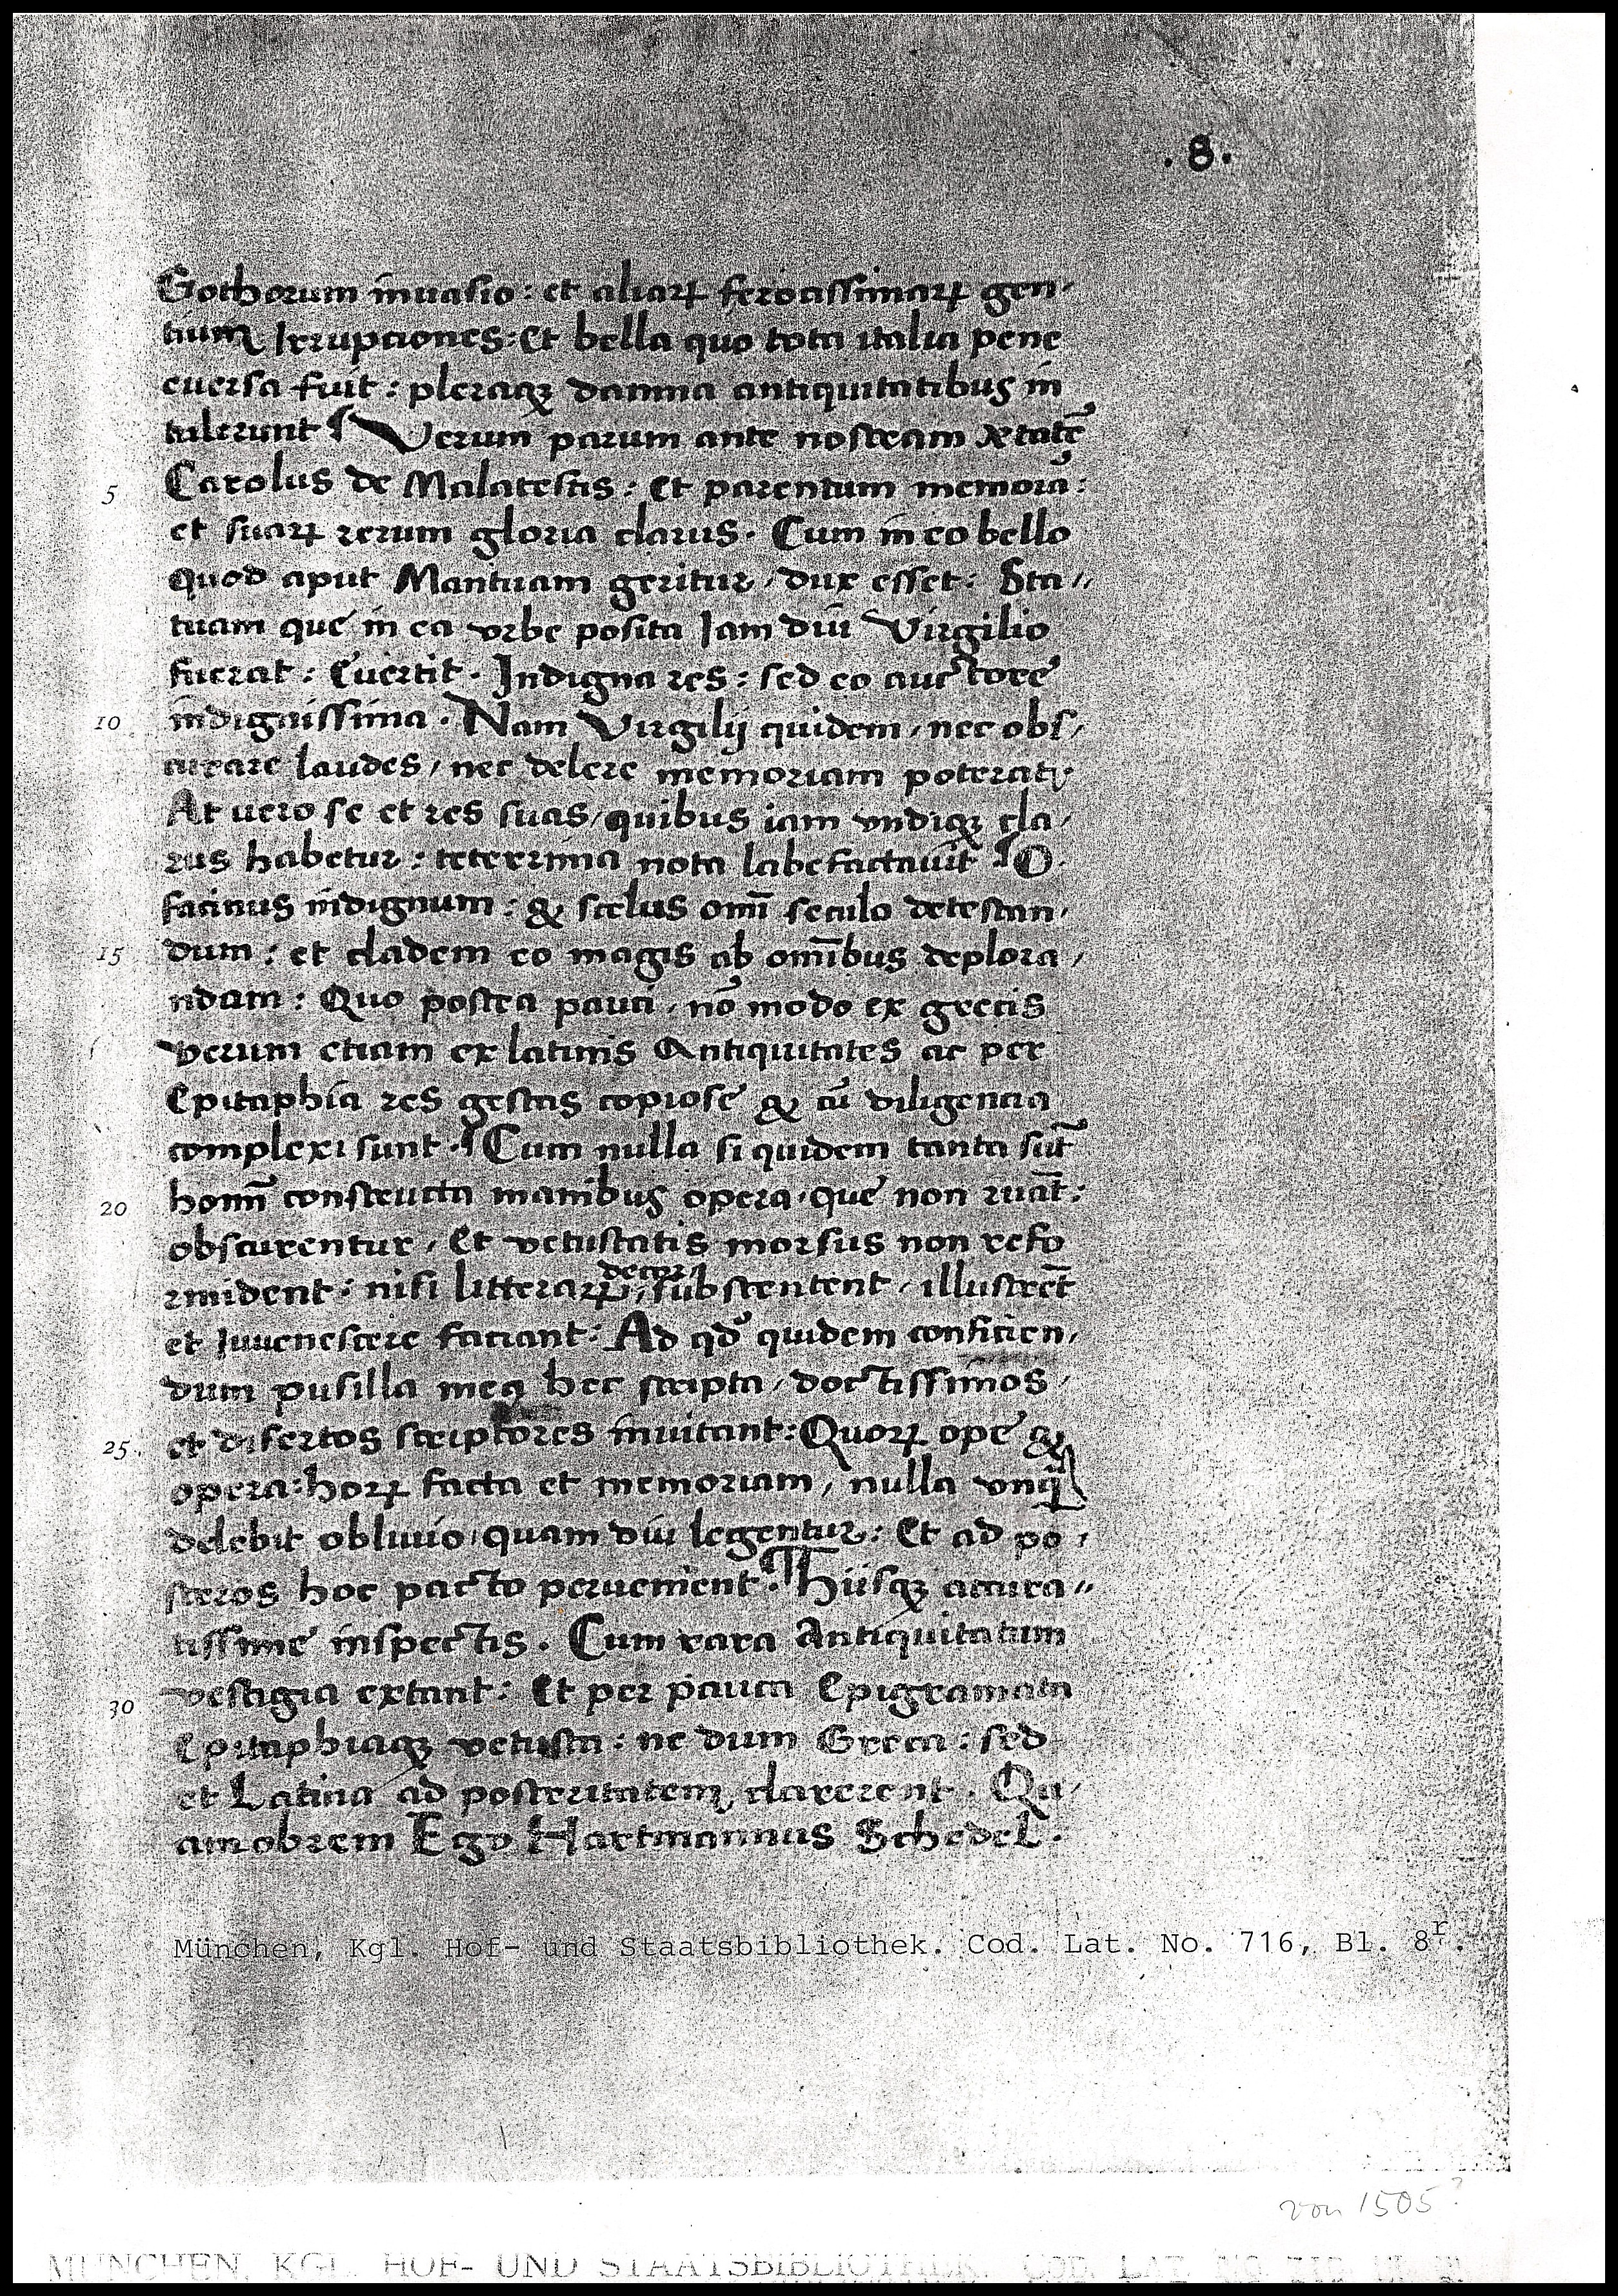 .8.
Gothorum inuasio: et aliaꝝ ferocissimaꝝ gen-
tium Irrupciones: Et bella quo tota italia pene
euersa fuit: pleraqꝫ damna antiquitatibus in
tulerunt ¶ Verum parum ante nostram ætatē
5 Carolus de Malatestis: Et parentum memoria:
et suaꝝ rerum gloria clarus. Cum in eo bello
quod aput Mantuam geritur, dux esset: Sta//
tuam que in ea vrbe posita Iam diu Virgilio
fuerat: Euertit. Indigna res: sed eo auctore
10 indignissima. Nam Virgilij quidem, nec obs/
curare laudes, nec delere memoriam poterat:
At uero se et res suas, quibus iam vndiqꝫ cla/
rus habetur: teterrima nota labefactauit ¶ O
facinus indignum: & scelus omī seculo detestan/
15 dum: et cladem eo magis ab omībus deplora/
ndam: Quo postea pauci, nō modo ex grecis
verum etiam ex latinis Antiquitates ac per
Epitaphia res gestas copiose & cū diligencia
complexi sunt. ¶ Cum nulla si quidem tanta sūt
20 homī constructa manibus opera, que non ruāt:
obscurentur, Et vetustatis morsus non refo
rmident: nisi litteraꝝ decora substentent, illustrēt
et Iuuenescere faciant: Ad qđ quidem conficien/
dum pusilla mea hec scripta, doctissimos,
25. et disertos scriptores inuitant: Quoꝝ ope &
opera: hoꝝ facta et memoriam, nulla vnq̄
delebit obliuio, quam diu legentur: Et ad po/
steros hoc pacto peruenient. ¶ Hiisqꝫ accura//
tissime inspectis. Cum rara Antiquitatum
30 vestigia extant: Et per pauca Epigramata
Epitaphiaqꝫ vetusta: ne dum Greca: sed
et Latina ad posteritatem clarerent. Qu/
amobrem Ego Hartmannus Schedel.
München, Kgl. Hof- und Staatsbibliothek. Cod. Lat. No. 716, Bl. 8r.
von 1505?
MÜNCHEN, KGL. HOF- UND STAATSBIBLIOTHEK. COD. LAT. NO.